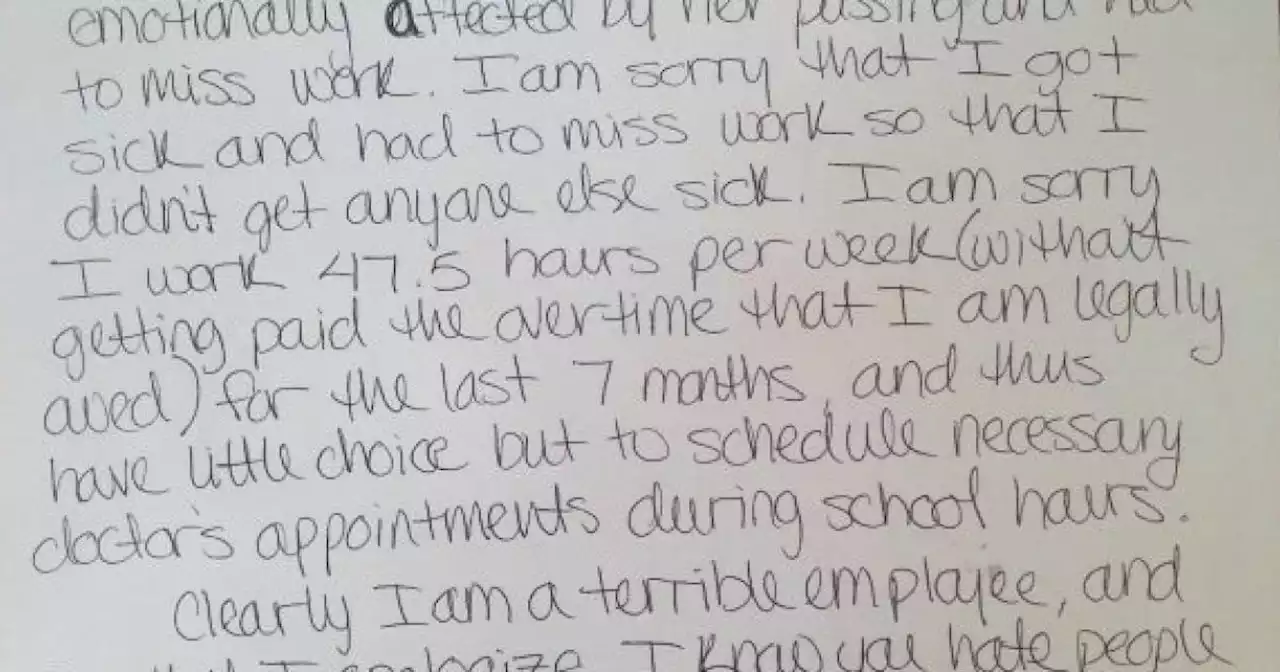 emotionally affected by her passing and had
to miss work. I am sorry that I got
sick and had to miss work so that I
didn't get anyone else sick. I am sorry
I work 47.5 hours per week (without
getting paid the overtime that I am legally
owed) for the last 7 months, and thus
have little choice but to schedule necessary
doctor's appointments during school hours.
Clearly I am a terrible employee, and
that I apologize. I know you hate people